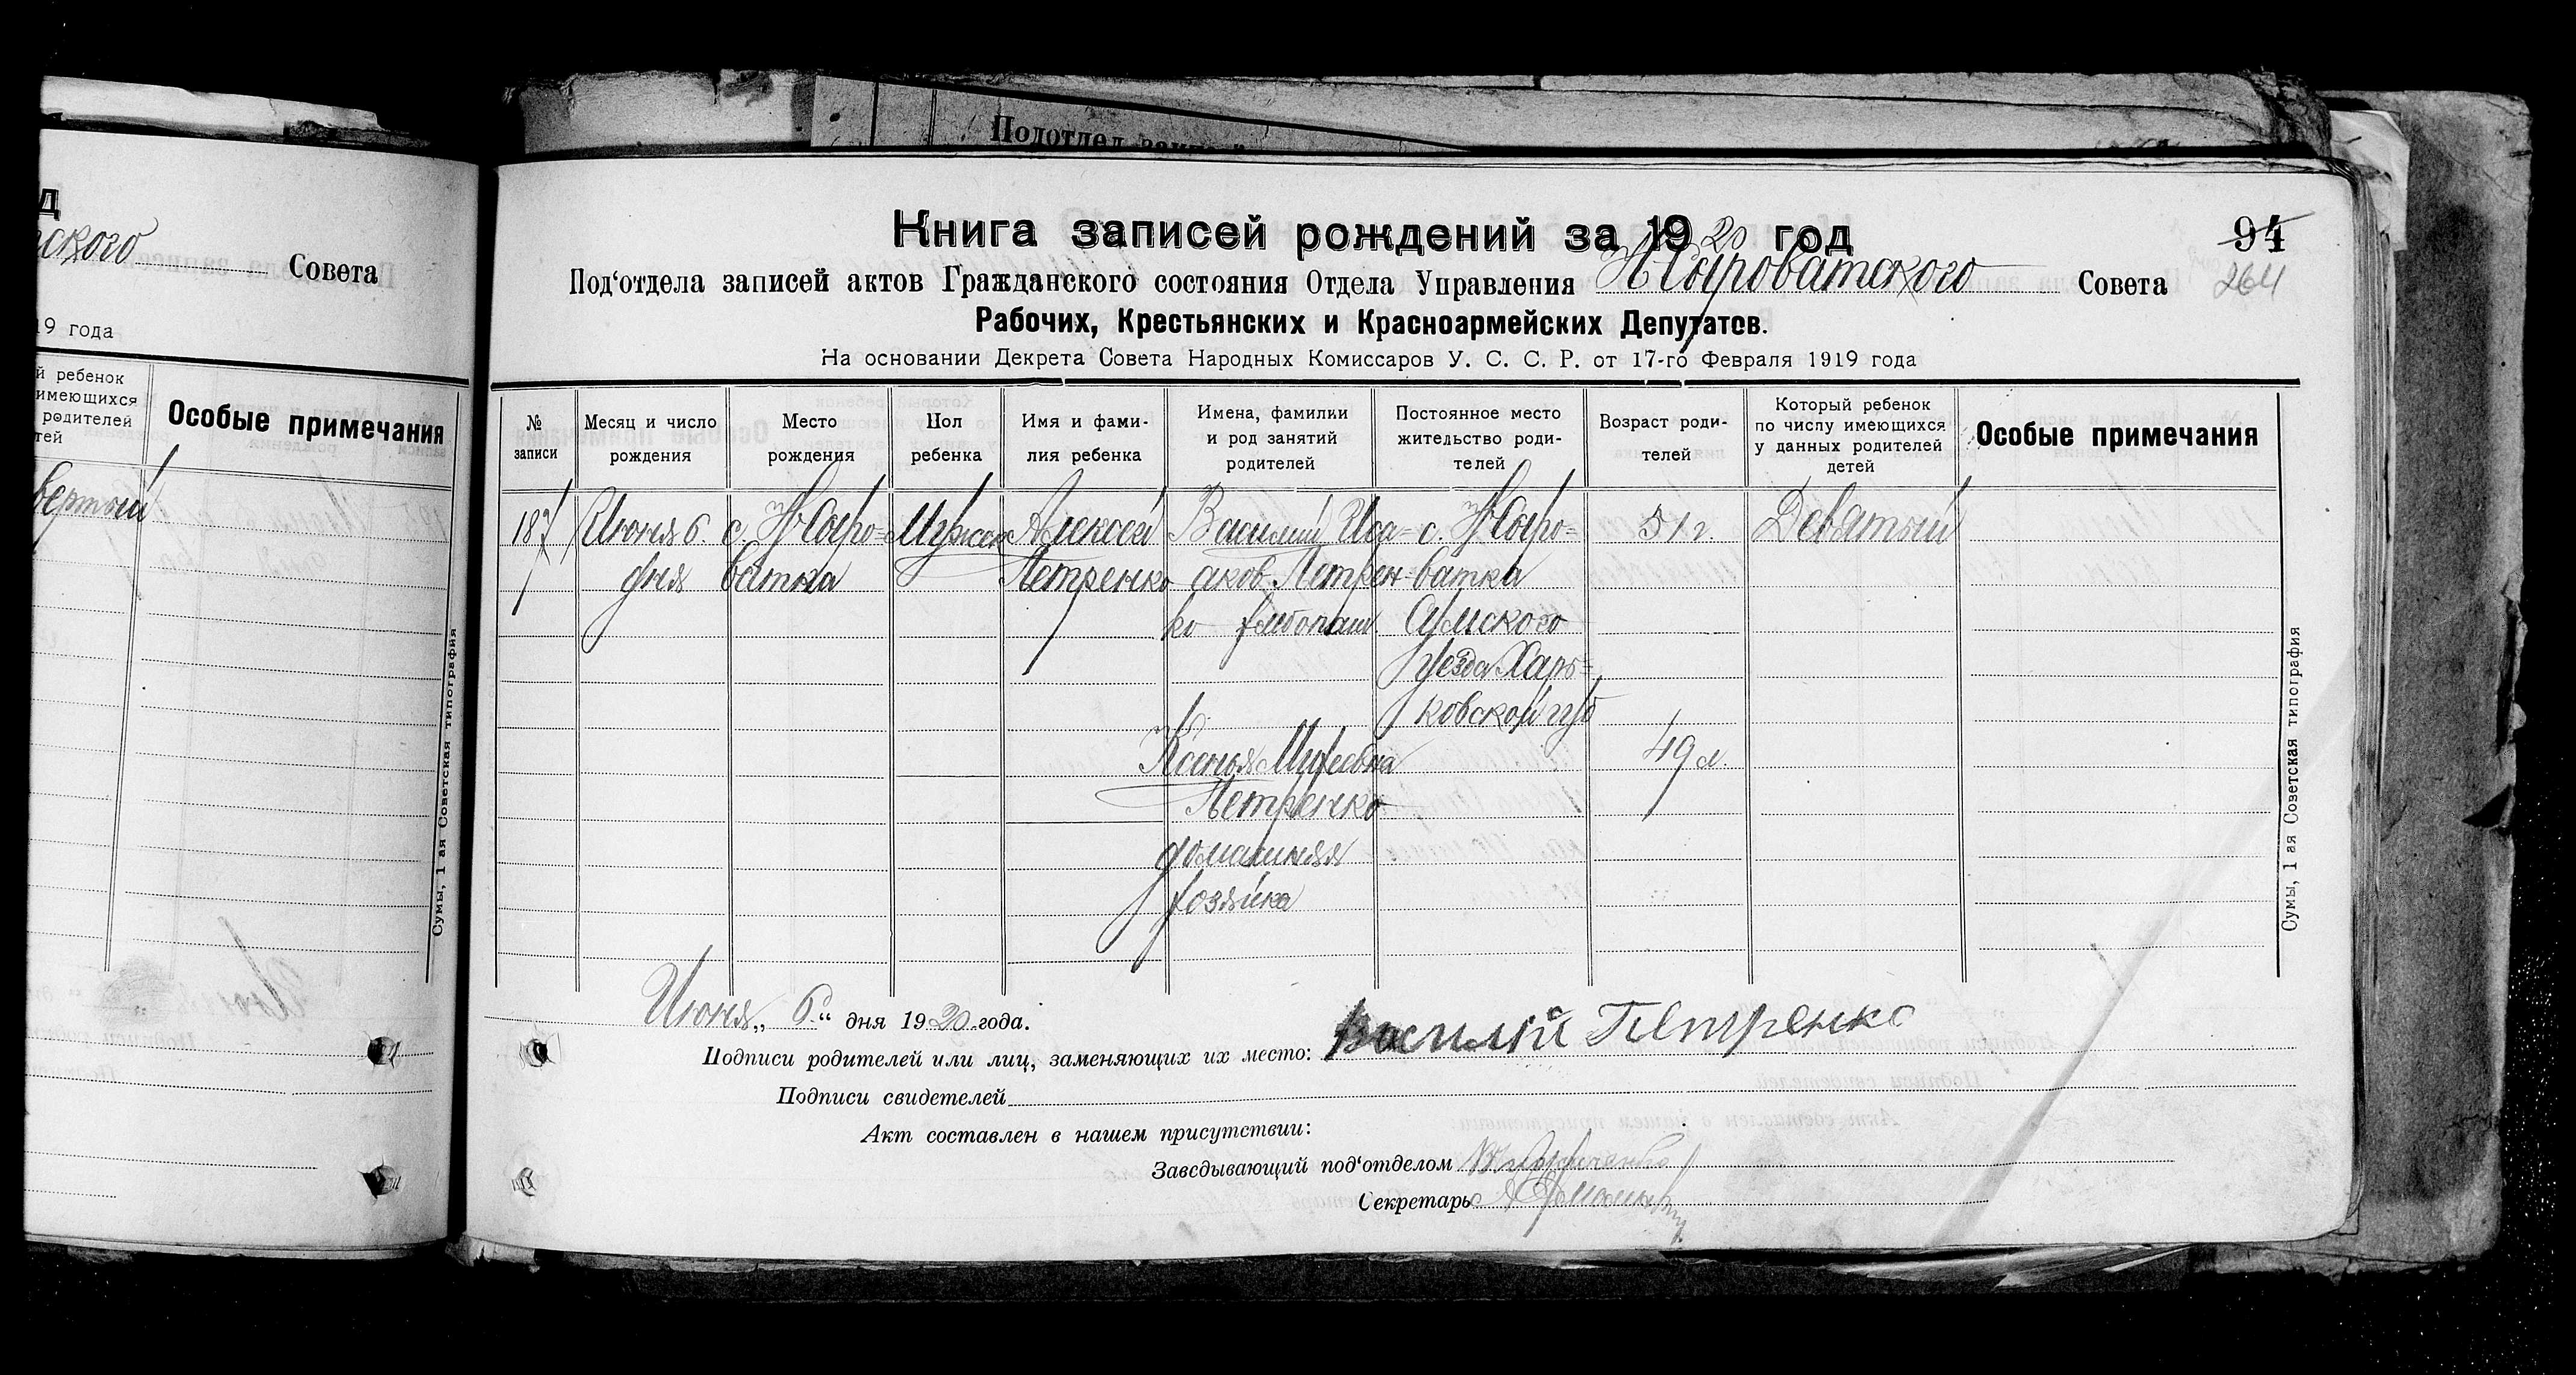 Подотдел
д
ского Совета
19 года
й ребенок
имеющихся
родителей
тей
Особые примечания
вертый
Сумы, 1 ая Советская типография
Книга записей рождений за 1920 год
94
264
Под'отдела записей актов Гражданского состояния Отдела Управления Н Сыроватского Совета
Рабочих, Крестьянских и Красноармейских Депутатов.
На основании Декрета Совета Народных Комиссаров У. С. С. Р. от 17-го Февраля 1919 года
№ записи
Месяц и число рождения
Место рождения
Пол ребенка
Имя и фамилия ребенка
Имена, фамилии и род занятий родителей
Постоянное место жительство родителей
Возраст родителей
Который ребенок по числу имеющихся у данных родителей детей
Особые примечания
187 Июня 6. с. Н Сыро- Мужск Алексей Василий Иса- с. Н Сыро- 51 г. Девятый
дня ватка Петренко аков. Петрен- ватка
ко хлебопаш Сумского
уезда Харь-
ковской губ
Ксенья Мифеевна 49 л.
Петренко
домашняя
хозяйка
Сумы, 1 ая Советская типография
Июня „6“ дня 1920 года.
Подписи родителей или лиц, заменяющих их место: Василий Петренко
Подписи свидетелей
Акт составлен в нашем присутствии:
Заведывающий под'отделом
Секретарь